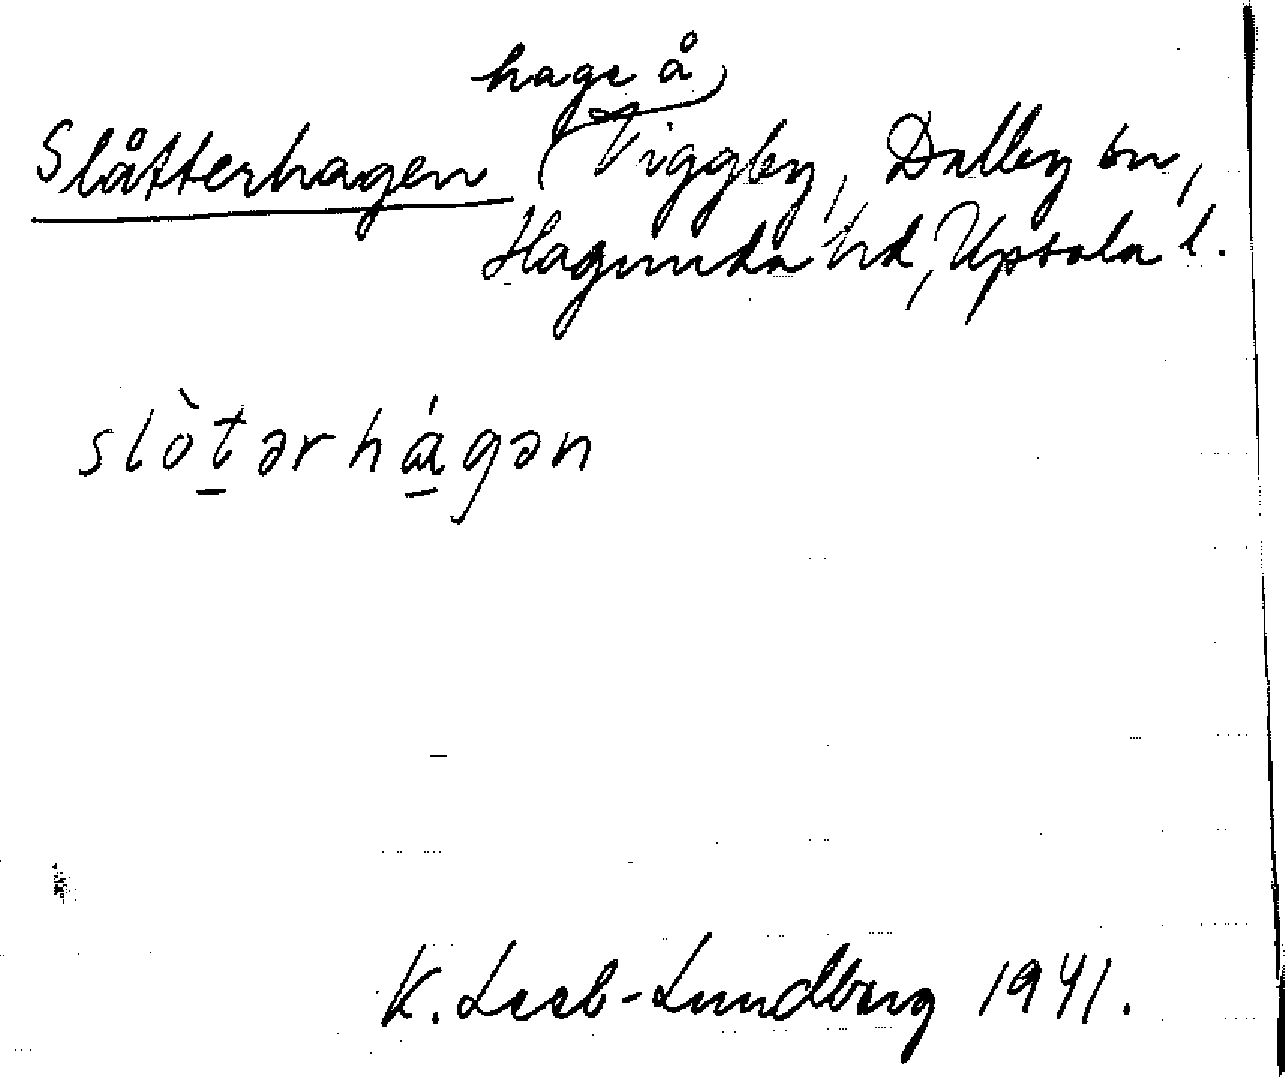 hage å
Slåtterhagen Viggby, Dalby sn,
Hagunda hd, Upsala l.
slò̱tərhá̱gən
K. Leeb-Lundberg 1941.